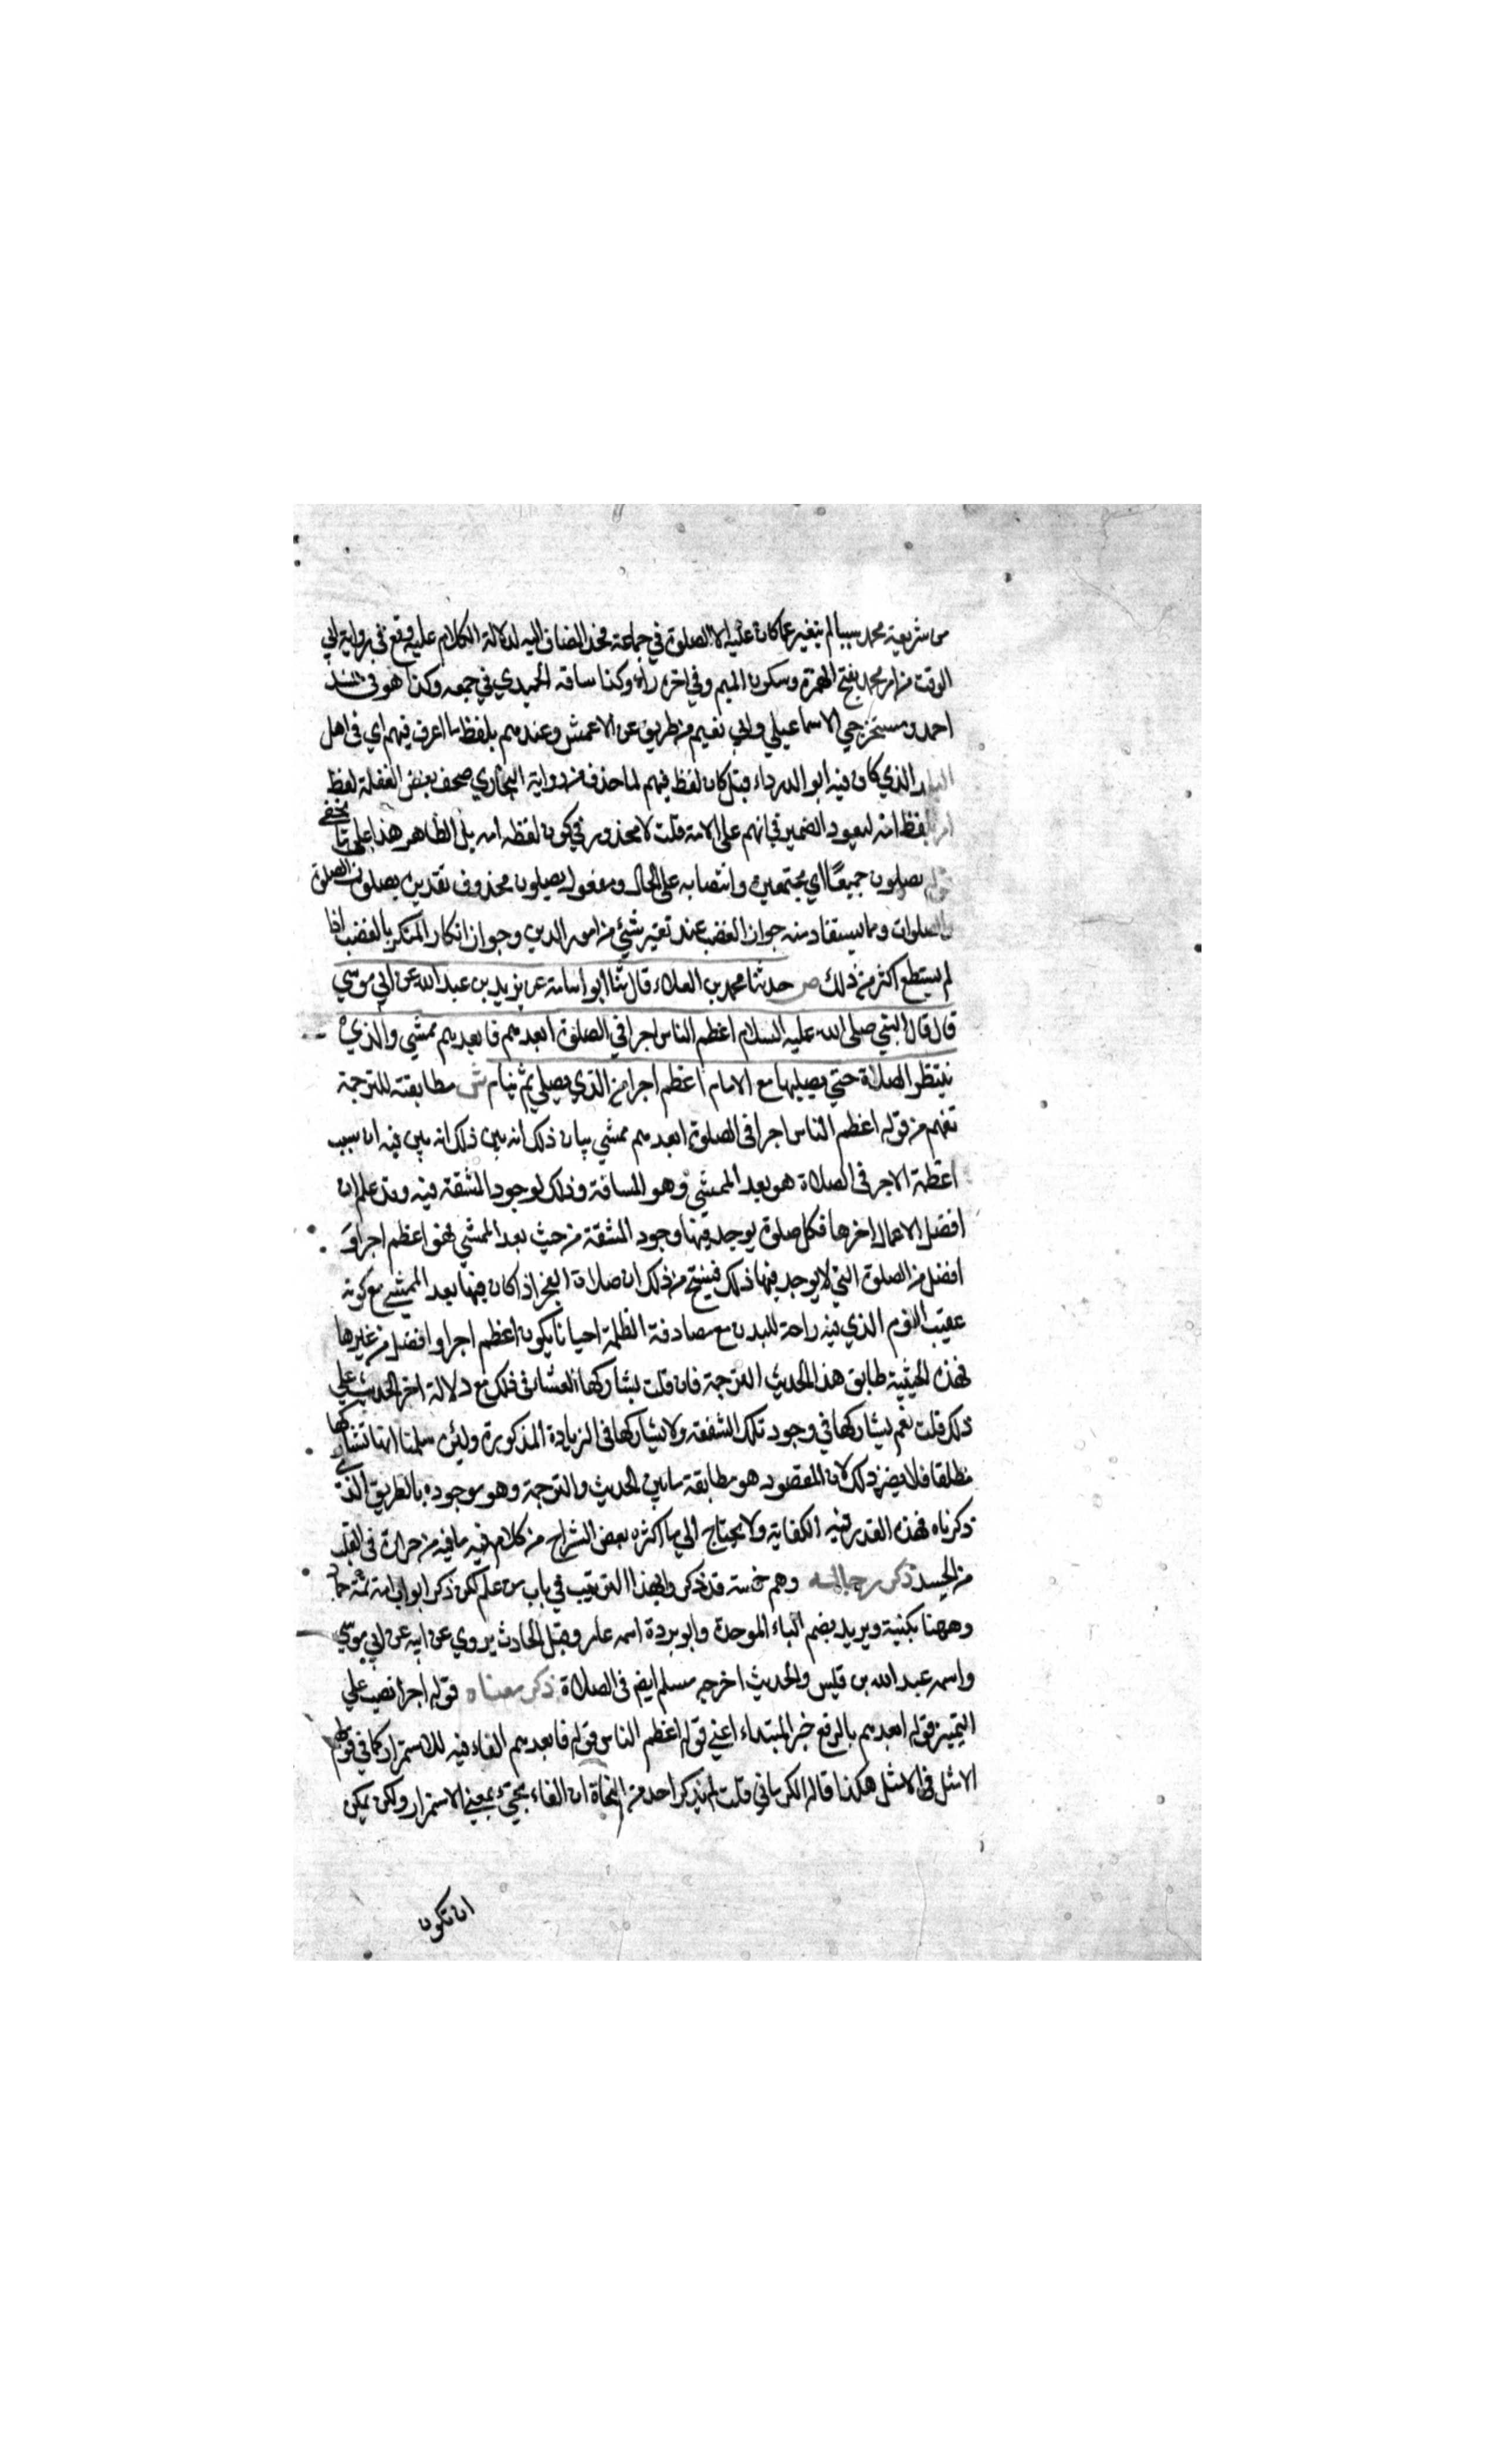 من شريعة محمد شيئا لم يتغير عما كان عليه الا الصلوة في جماعة فحذف المضاف اليه لدلالة الكلام عليه وقع في رواية ابي
الوقت من امر محمد بفتح الهمزة وسكون الميم وفي اخره راء وكذا ساقه الحميدي في جمعه وكذا هو في مسند
احمد ومستخرجي الاسماعيلي وابي نعيم من طريق عن الاعمش وعندهم بلفظ ما اعرف فيهم اي في اهل
البلد الذي كان فيه ابو الدرداء قيل كان لفظ فيهم لما حذف من رواية البخاري صحف بعض النقلة لفظ
امر بلفظ امة ليعود الضمير في انهم على الامة قلت لا محذور في كون لفظه امة بل الظاهر هذا على ما لا يخفى
قوله يصلون جميعًا اي مجتمعين وانتصابه على الحال ومفعول يصلون محذوف تقديره يصلون الصلوة
والصلوات ومما يستفاد منه جواز الغضب عند تغير شيئ من امور الدين وجواز انكار المنكر بالغضب اذا
لم يستطع اكثر من ذلك ص حدثنا محمد بن العلاء قال ثنا ابو اسامة عن بريد بن عبد الله عن ابي موسي
قال قال النبي صلى الله عليه السلام اعظم الناس اجرا في الصلوة ابعدهم فابعدهم ممشي والذي
ينتظر الصلاة حتي يصليها مع الامام اعظم اجرا من الذي يصلي ثم ينام ش مطابقته للترجمة
تفهم من قوله اعظم الناس اجرا في الصلوة ابعدهم ممشي بيان ذلك انه بين ذلك انه بين فيه ان سبب
اعظمة الاجر في الصلاة هو بعد الممشي وهو المسافة وذلك لوجود المشقة فيه وقد علم ان
افضل الاعمال احمزها فكل صلوة يوجد فيها وجود المشقة من حيث بعد الممشي فهو اعظم اجرا و
افضل من الصلوة التي لا يوجد فيها ذلك فينتج من ذلك ان صلاة الفجر اذا كان فيها بعد الممشي مع كونه
عقيب النوم الذي فيه راحة للبدن مع مصادفة الظلمة احيانا يكون اعظم اجرا وافضل من غيرها
فهذه الحيثية طابق هذا الحديث الترجمة فان قلت يشاركها العشاء في ذلك مع دلالة اخر الحديث علي
ذلك قلت نعم يشاركها في وجود تلك الشفقة ولا يشاركها في الزيادة المذكورة ولئن سلمنا انها تشاركها
مطلقا فلا يضر ذلك لان المقصود هو مطابقة ما بين الحديث والترجمة وهو موجود بالطريق الذي
ذكرناه فهذا القدر فيه الكفاية ولا يحتاج الي ما اكثره بعض الشراح من كلام فيه ما فيه من حرارة في القلب
من الحسد ذكر رجاله وهم خمسة قد ذكروا بهذا الترتيب في باب من علم لكن ذكر ابو اسامة ثمة حماد
وههنا بكنيته وبريد بضم الباء الموحدة وابو بردة اسمه عامر وقيل الحادث يروي عن ابيه عن ابي موسي
واسمه عبد الله بن قيس والحديث اخرجه مسلم ايضم في الصلاة ذكر معناه قوله اجرا نصب علي
التمييز قوله ابعدهم بالرفع خبر المبتداء اعني قوله اعظم الناس قوله فابعدهم الفاء فيه للاستمرار كما في قولهم
الامثل فالامثل هكذا قاله الكرماني قلت لم يذكر احد من النحاة ان الفاء تجيء بمعني الاستمرار ولكن يمكن
ان تكون